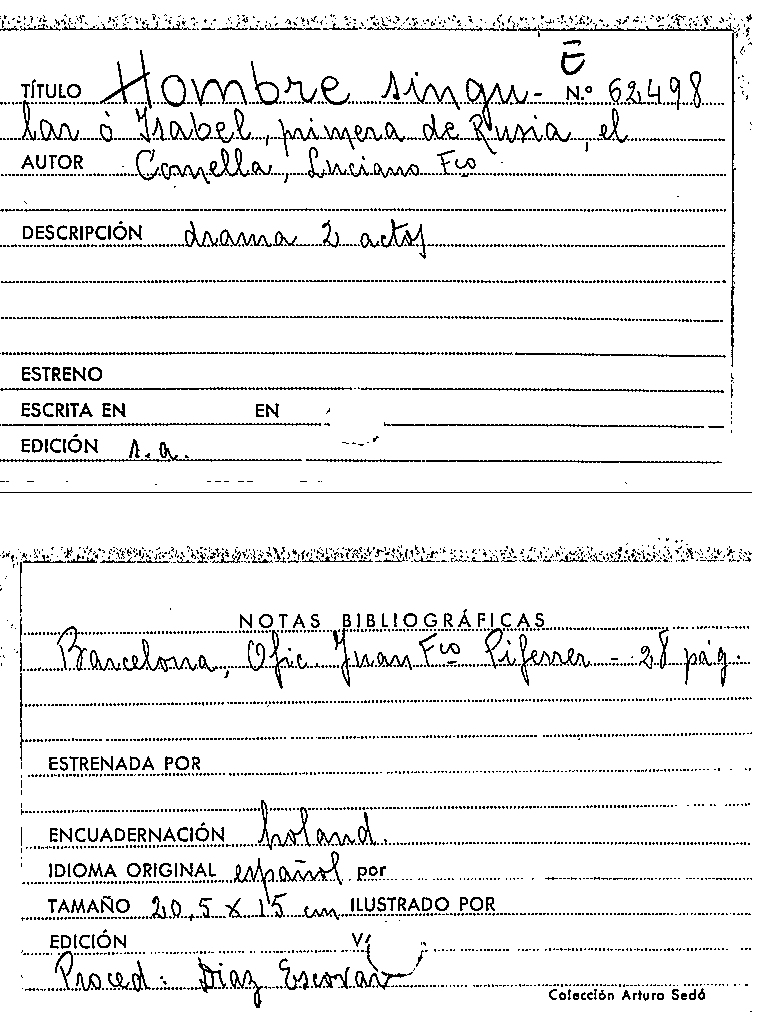 E
TÍTULO Hombre singu- N.º 62498
lar ó Isabel, primera de Rusia, el
AUTOR Comella, Luciano Fco
DESCRIPCIÓN drama 2 actos
ESTRENO
ESCRITA EN EN
EDICIÓN s.a.
NOTAS BIBLIOGRÁFICAS
Barcelona, Ofic. Juan Fco Piferrer - 28 pág.
ESTRENADA POR
ENCUADERNACIÓN holand.
IDIOMA ORIGINAL español por
TAMAÑO 20,5 x 15 cm ILUSTRADO POR
EDICIÓN
Proced: Diaz Escovar
Colección Arturo Sedó